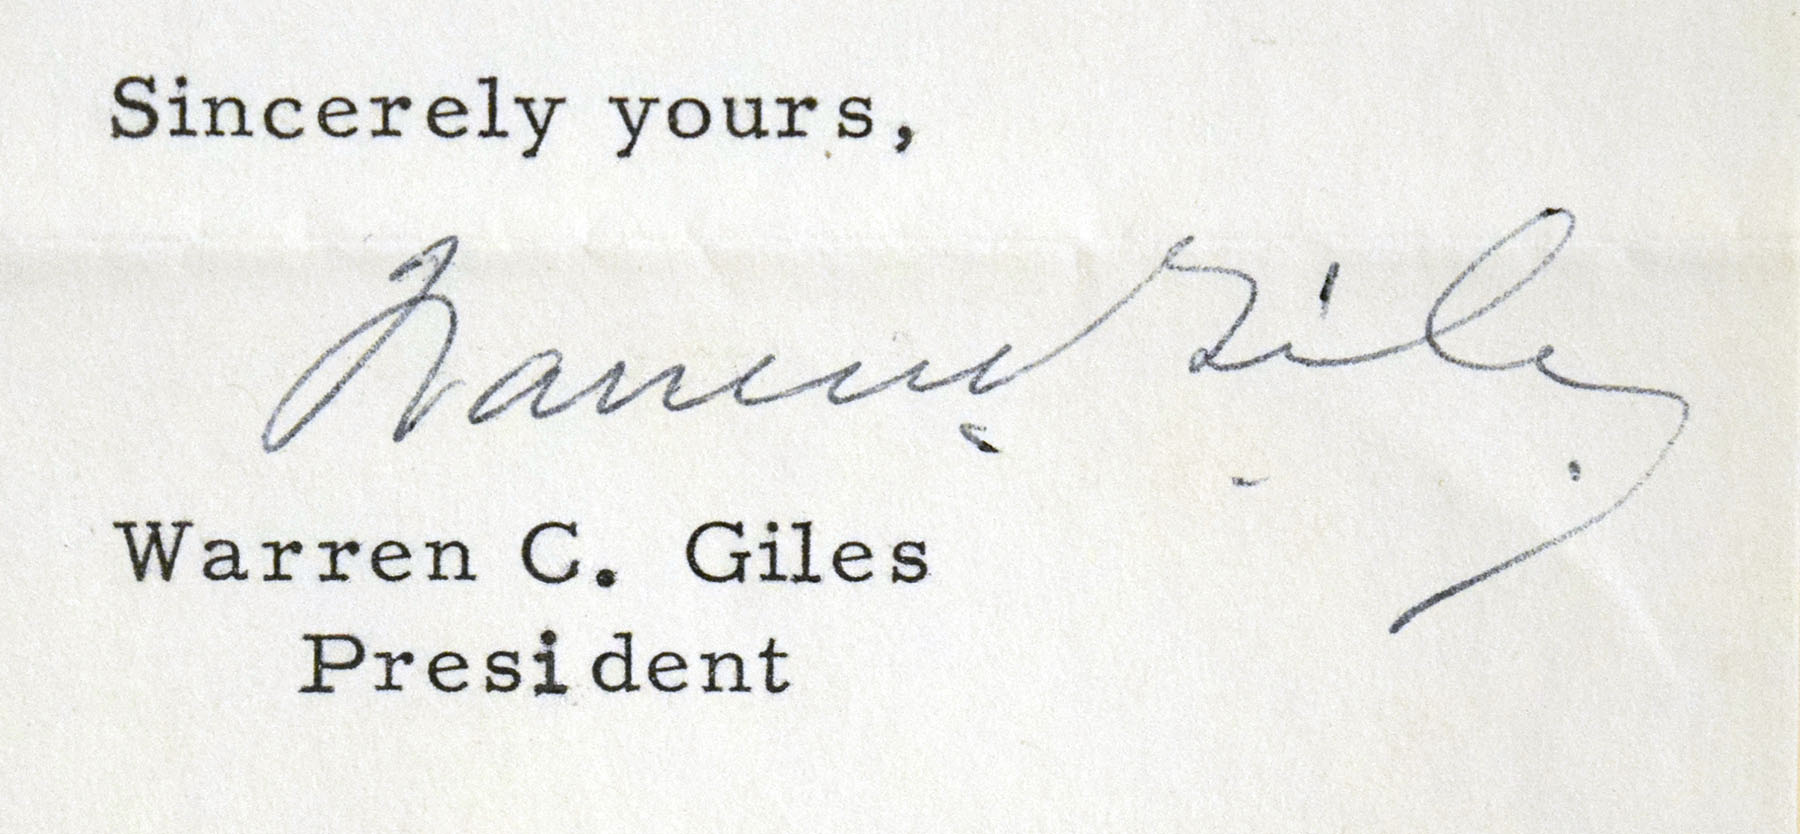 Sincerely yours,
Warren Giles
Warren C. Giles
President